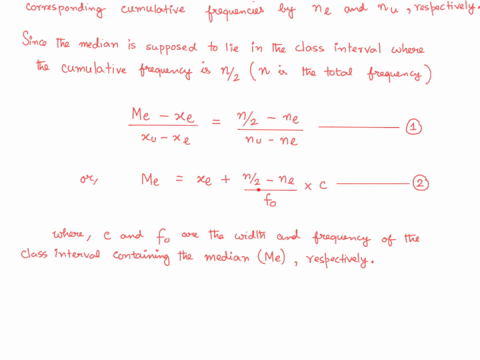 corresponding cumulative frequencies by nℓ and nu, respectively.
Since the median is supposed to lie in the class interval where
the cumulative frequency is n/2 (n is the total frequency)
(Me - xℓ)/(xu - xℓ) = (n/2 - nℓ)/(nu - nℓ) ——— ①
or, Me = xℓ + (n/2 - nℓ)/f₀ × c ——— ②
where, c and f₀ are the width and frequency of the
class interval containing the median (Me), respectively.